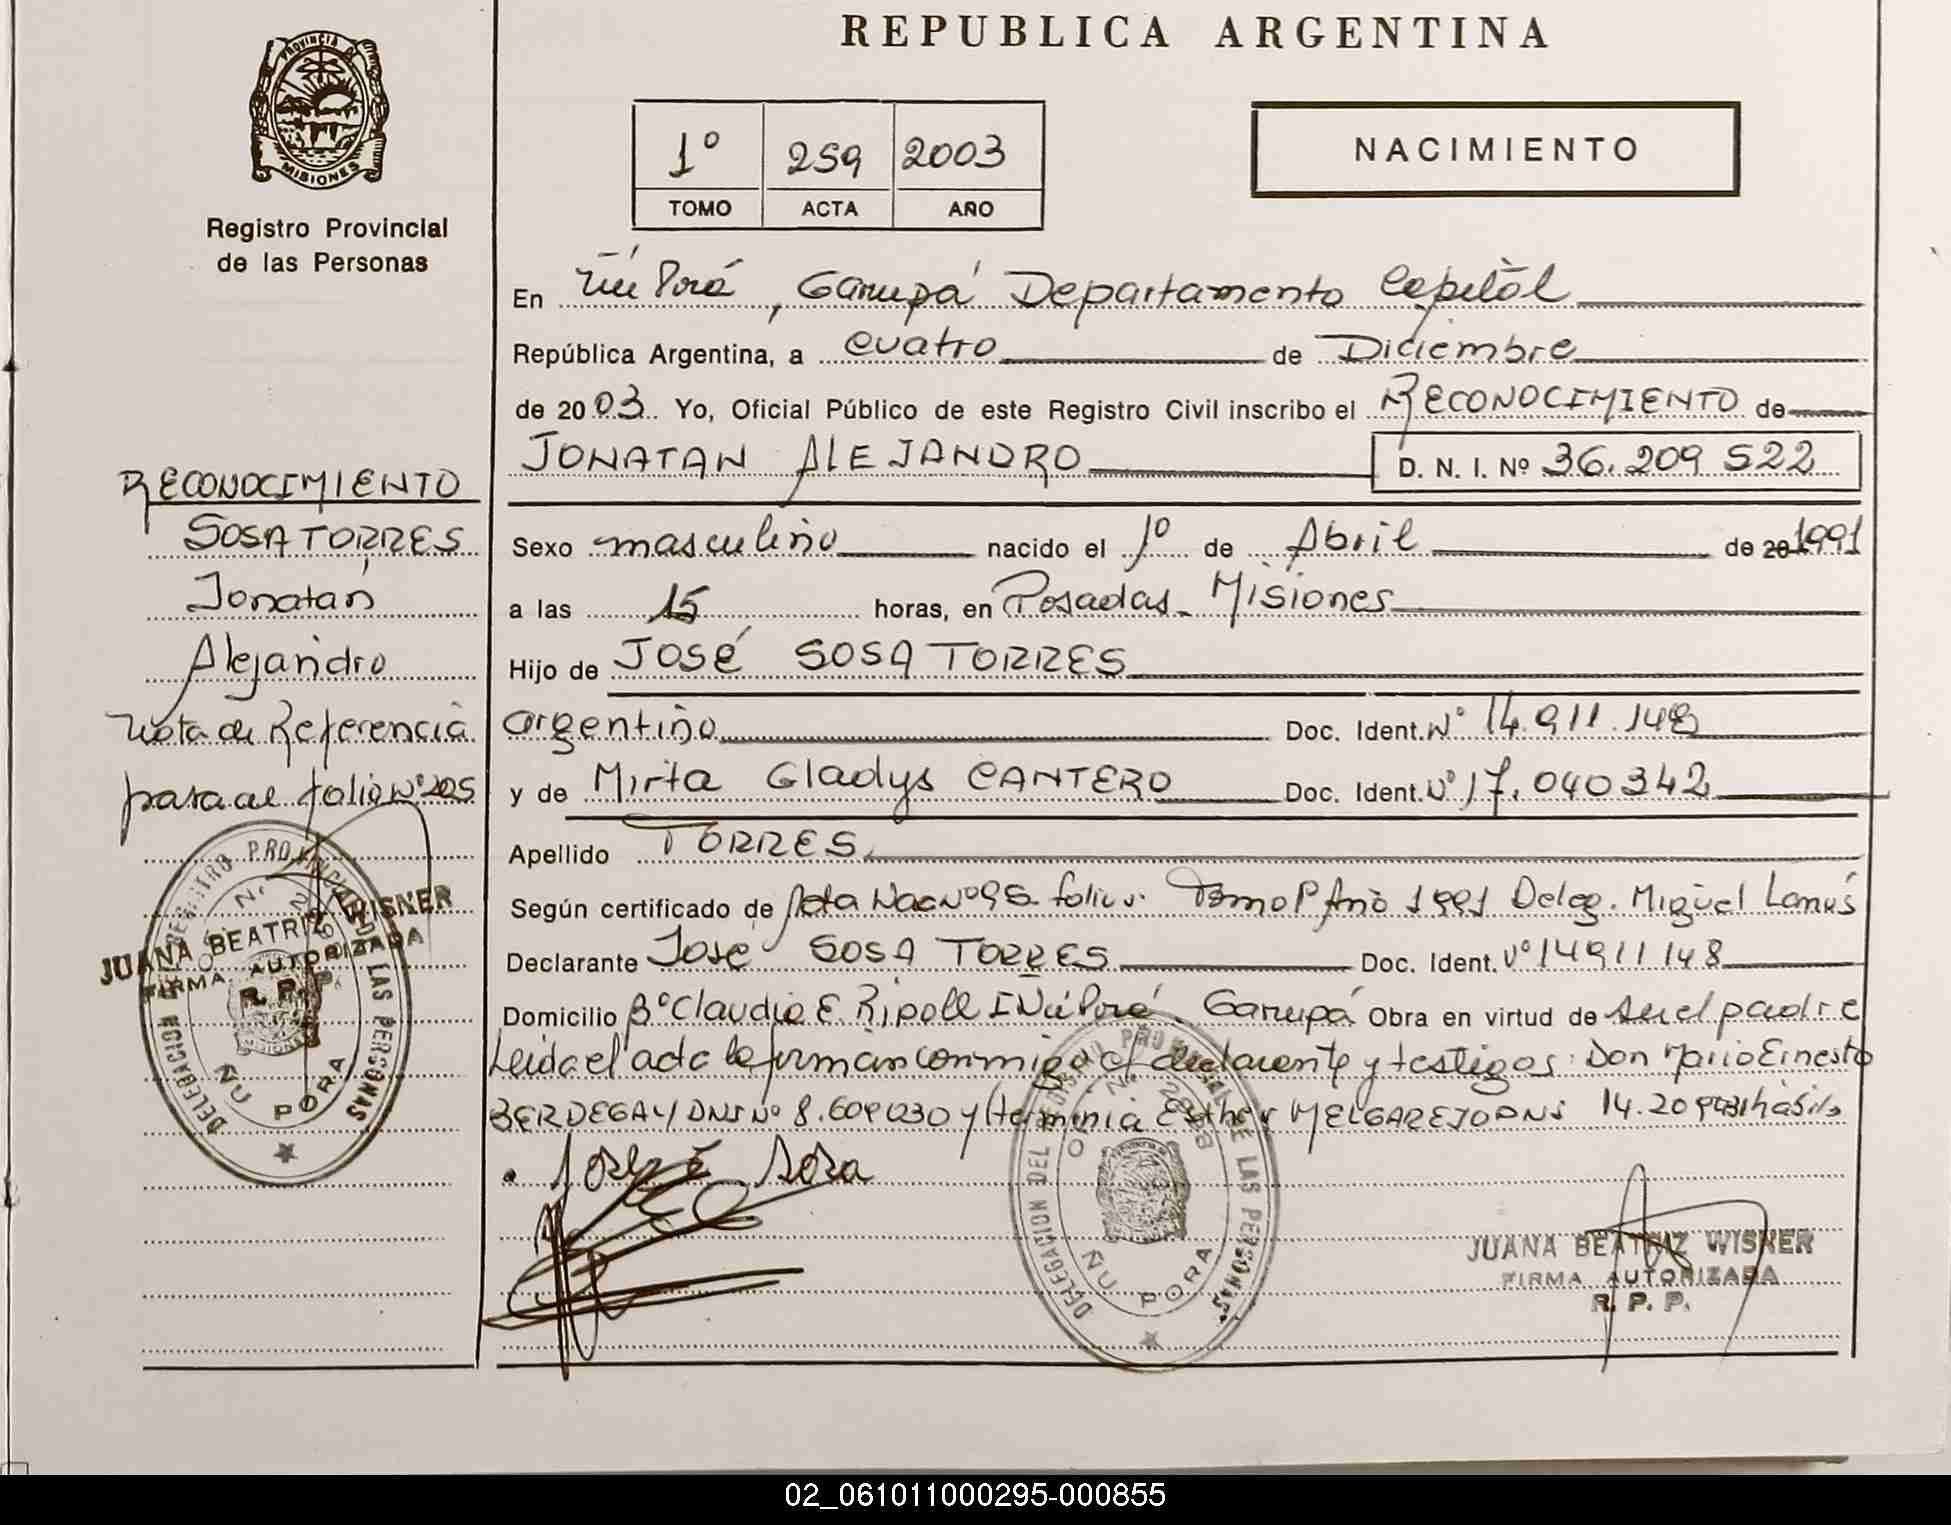 REPUBLICA ARGENTINA
PROVINCIA DE
MISIONES
Registro Provincial
de las Personas
1º 259 2003
TOMO ACTA AÑO
NACIMIENTO
En Ñú Porá, Garupá Departamento Capital
República Argentina, a cuatro de Diciembre
de 2003. Yo, Oficial Público de este Registro Civil inscribo el RECONOCIMIENTO de
JONATAN ALEJANDRO D. N. I. Nº 36.209 522
Sexo masculino nacido el 1º de Abril de 20 1991
a las 15 horas, en Posadas Misiones
Hijo de JOSÉ SOSA TORRES
argentino Doc. Ident. Nº 14.911.148
y de Mirta Gladys CANTERO Doc. Ident. Nº 17.040342
Apellido TORRES
Según certificado de Acta Nac Nº folio Tomo Año 1991 Deleg. Miguel Lanús
Declarante José SOSA TORRES Doc. Ident. Nº 14911148
Domicilio Bº Claudia E. Ripoll Ñú Porá Garupá Obra en virtud de ser el padre
Leida el acta la firman conmigo el declarante y testigos: Don Mario Ernesto
BERDEGAY DNI Nº y Herminia Esther MELGAREJO DNI hábiles
José Sosa
JUANA BEATRIZ WISNER
FIRMA AUTORIZADA
R. P. P.
DELEGACION DEL REGISTRO PROVINCIAL DE LAS PERSONAS
ÑU PORA
RECONOCIMIENTO
SOSA TORRES
Jonatán
Alejandro
Nota de Referencia
pasa al folio Nº 205
JUANA BEATRIZ WISNER
FIRMA AUTORIZADA
R. P. P.
DELEGACION DEL REGISTRO PROVINCIAL DE LAS PERSONAS
ÑU PORA
02_061011000295-000855